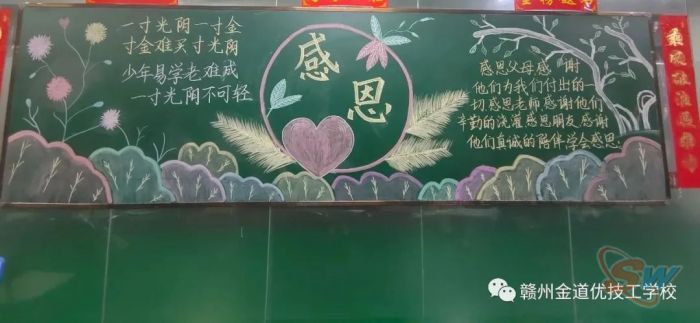 一寸光阴一寸金
寸金难买寸光阴
少年易学老难成
一寸光阴不可轻
感
恩
感恩父母感 谢
他们为我们付出的一
切感恩老师感谢他们
辛勤的浇灌感恩朋友感谢
他们真诚的陪伴学会感恩.
SW
赣州金道优技工学校